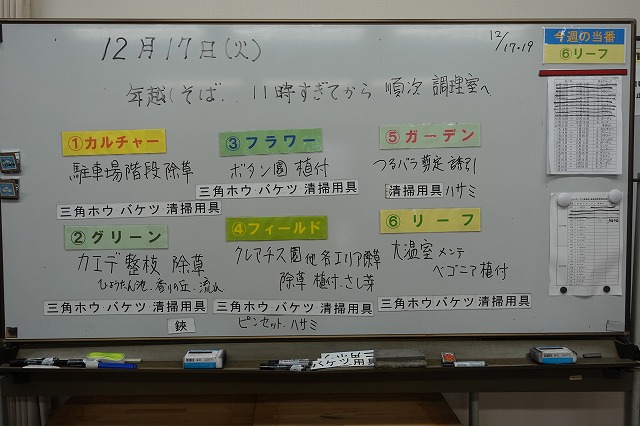 12月17日(火)
12/17・19
今週の当番
⑥リーフ
年越しそば・・ 11時すぎてから 順次 調理室へ
①カルチャー
駐車場階段除草
三角ホウ・バケツ・清掃用具
③フラワー
ボタン園 植付
三角ホウ・バケツ・清掃用具
⑤ガーデン
つるバラ剪定 誘引
清掃用具 ハサミ
②グリーン
カエデ整枝 除草
ひょうたん池、香りの丘、流れ
三角ホウ・バケツ・清掃用具
鋏
④フィールド
クレマチス園 他 各エリア除草
除草 植付、さし芽
三角ホウ・バケツ・清掃用具
ピンセット、ハサミ
⑥リーフ
大温室 メンテ
ベゴニア植付
三角ホウ・バケツ・清掃用具
バケツ・清掃用具